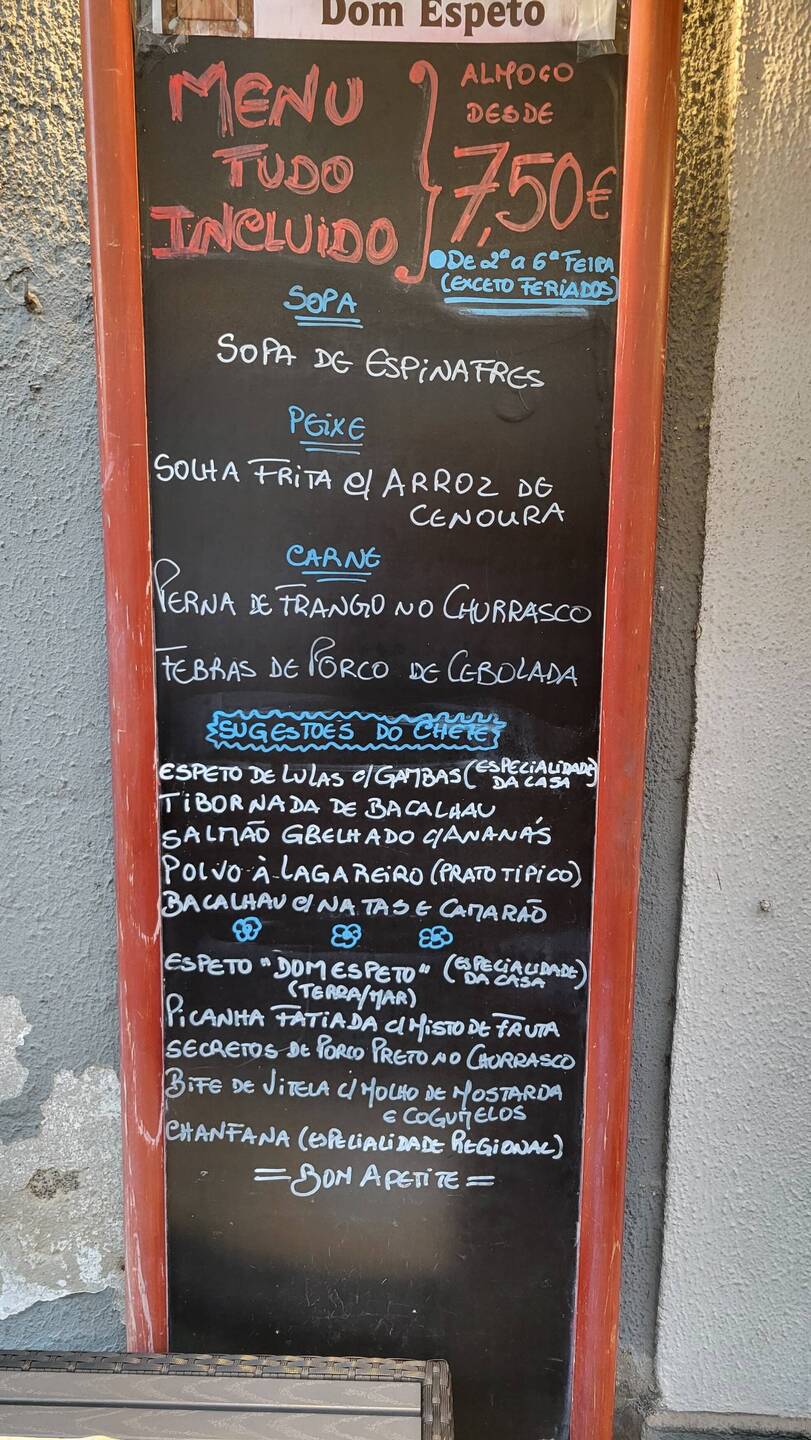 Dom Espeto
MENU
TUDO
INCLUIDO
ALMOÇO
DESDE
7,50€
DE 2ª a 6ª FEIRA
(EXCETO FERIADOS)
SOPA
SOPA DE ESPINAFRES
PEIXE
SOLHA FRITA c/ ARROZ DE
CENOURA
CARNE
PERNA DE FRANGO NO CHURRASCO
FEBRAS DE PORCO DE CEBOLADA
SUGESTOES DO CHEFE
ESPETO DE LULAS c/GAMBAS (ESPECIALIDADE
DA CASA)
TIBORNADA DE BACALHAU
SALMÃO GRELHADO c/ANANÁS
POLVO À LAGAREIRO (PRATO TIPICO)
BACALHAU c/ NATAS E CAMARÃO
ESPETO "DOM ESPETO" (ESPECIALIDADE
DA CASA)
(TERRA/MAR)
PICANHA FATIADA c/ MISTO DE FRUTA
SECRETOS DE PORCO PRETO NO CHURRASCO
BIFE DE VITELA c/ MOLHO DE MOSTARDA
E COGUMELOS
CHANFANA (ESPECIALIDADE REGIONAL)
=BOM APETITE=